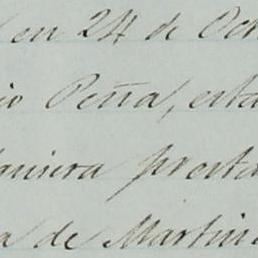 en 24 de Oct
io Peña, esta
quiera presta
a de Martin